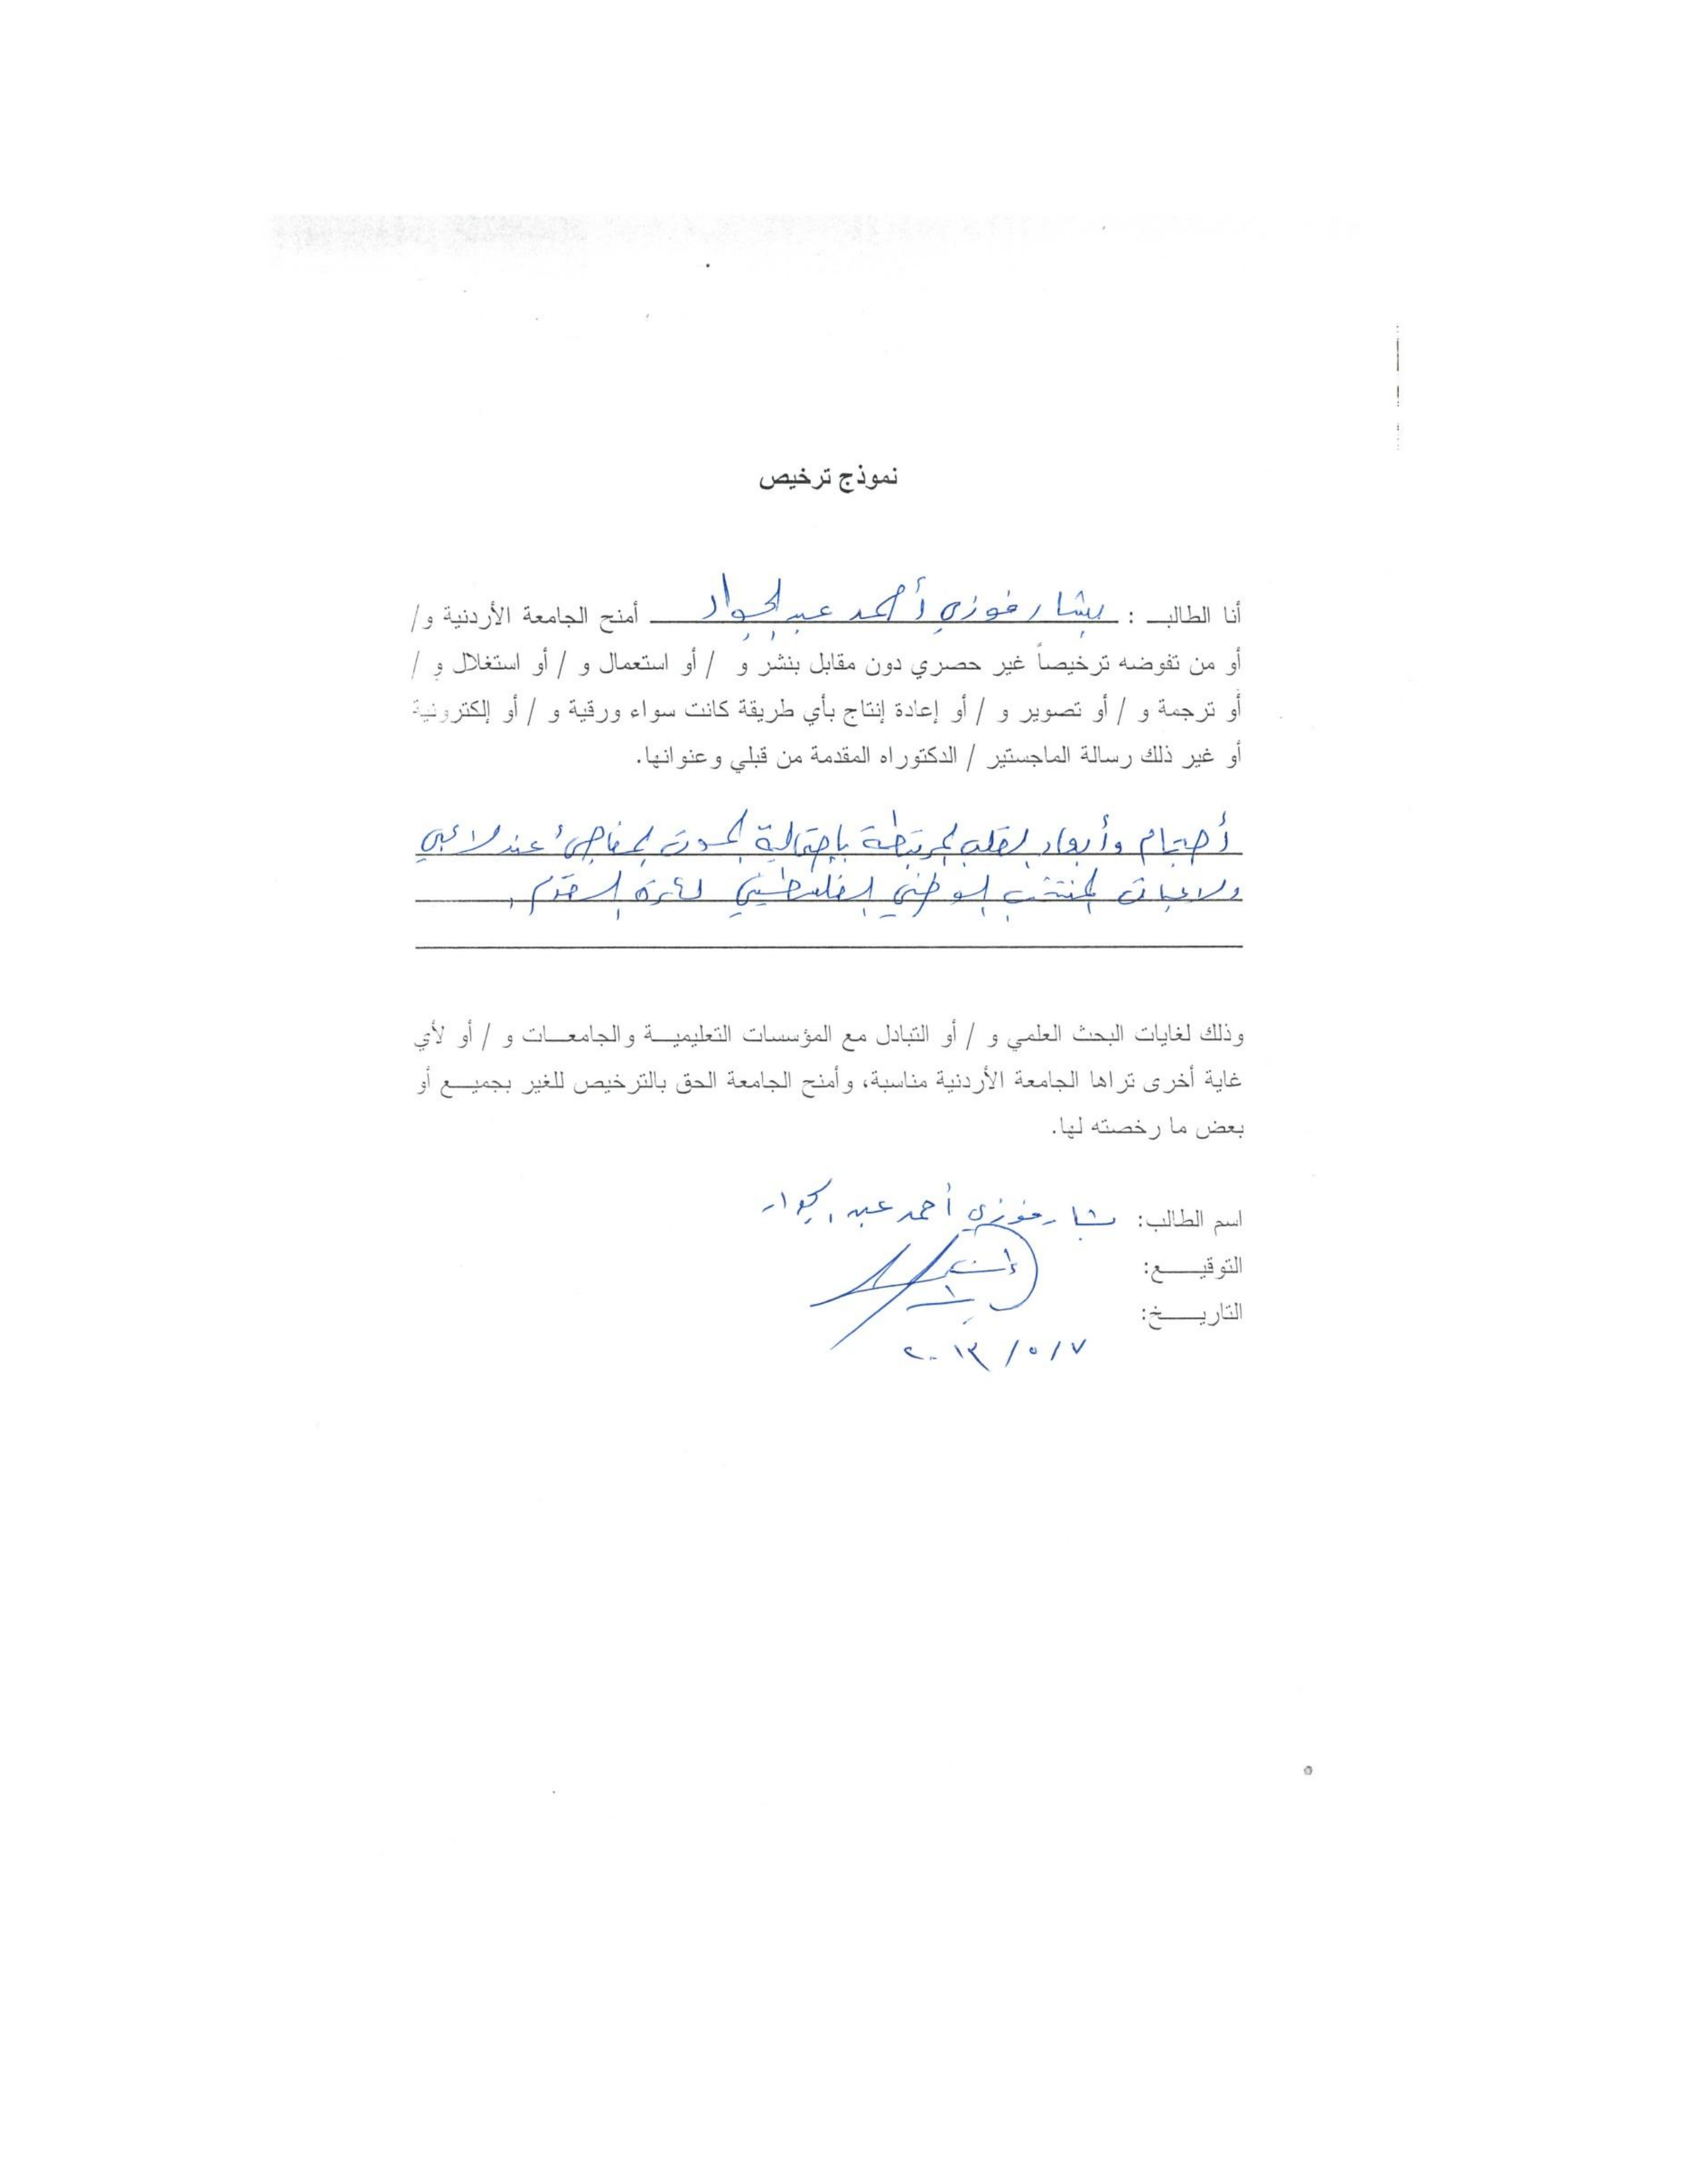 نموذج ترخيص
أنا الطالب : بشار فوزي أحمد عبد الجواد أمنح الجامعة الأردنية و/
أو من تفوضه ترخيصاً غير حصري دون مقابل بنشر و / أو استعمال و / أو استغلال و /
أو ترجمة و / أو تصوير و / أو إعادة إنتاج بأي طريقة كانت سواء ورقية و / أو إلكترونية
أو غير ذلك رسالة الماجستير / الدكتوراه المقدمة من قبلي وعنوانها.
أحجام وأبعاد القلب المرتبطة بإحتمالية الموت المفاجئ عند لاعبي
ولاعبات المنتخب الوطني الفلسطيني لكرة القدم.
وذلك لغايات البحث العلمي و / أو التبادل مع المؤسسات التعليمية والجامعات و / أو لأي
غاية أخرى تراها الجامعة الأردنية مناسبة، وأمنح الجامعة الحق بالترخيص للغير بجميع أو
بعض ما رخصته لها.
اسم الطالب: بشار فوزي أحمد عبد الجواد
التوقيع:
التاريخ:
٢٠١٣/٥/٧